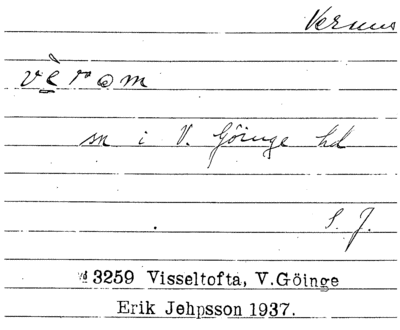 Verums
vèrom
sn i V. Göinge hd
S. J.
3259 Visseltofta, V. Göinge
Erik Jeppsson 1937.